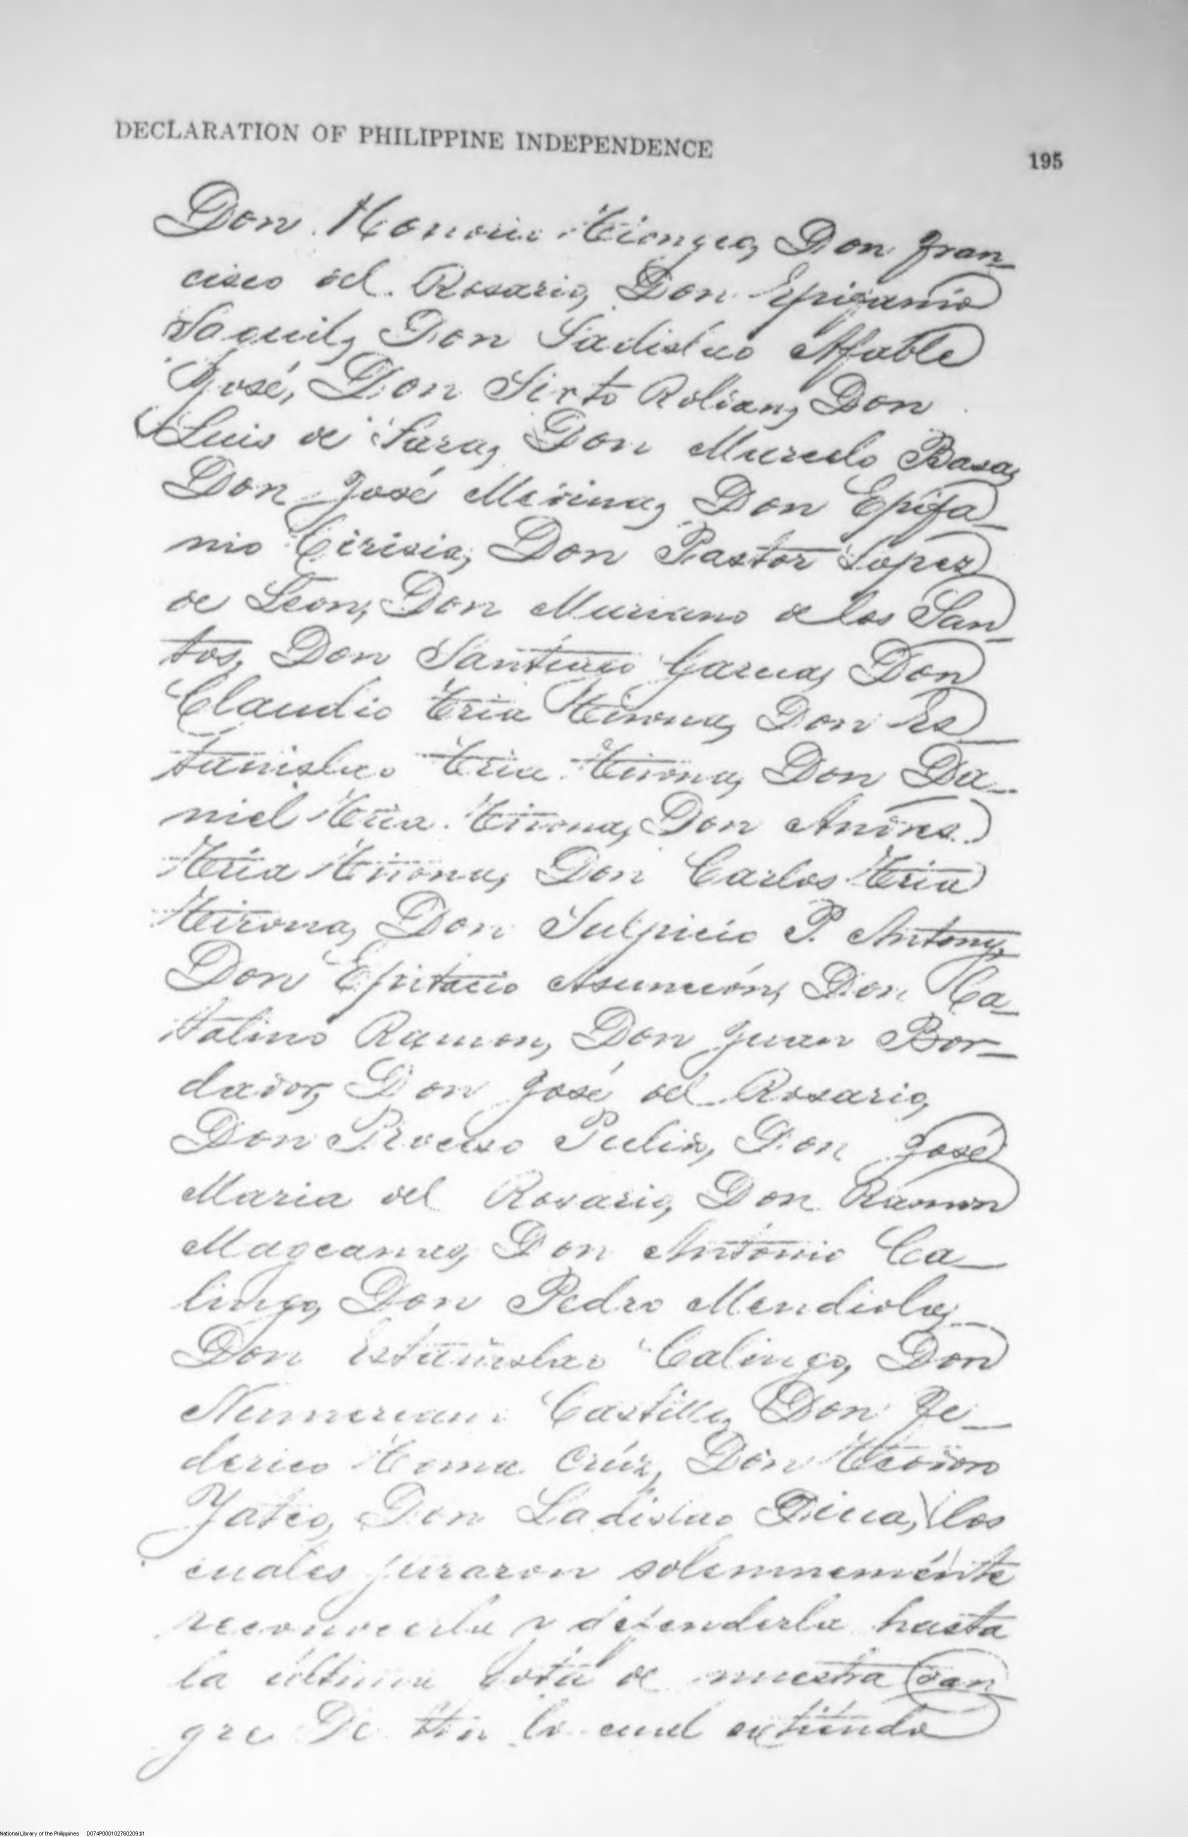 DECLARATION OF PHILIPPINE INDEPENDENCE
195
Don Honorio Tiongco, Don Fran-
cisco del Rosario, Don Epifanio
Saquil, Don Ladislao Afable
José, Don Sixto Roldan, Don
Luis de Lara, Don Marcelo Basa,
Don José Medina, Don Epifa-
nio Crisia, Don Pastor Lopez
de Leon, Don Mariano de los San-
tos, Don Santiago Garcia, Don
Claudio Tria Tirona, Don Es-
tanislao Tria Tirona, Don Da-
niel Tria Tirona, Don Andres
Tria Tirona, Don Carlos Tria
Tirona, Don Sulpicio P. Antony,
Don Epitacio Asunción, Don Ca-
talino Ramon, Don Juan Bor-
dador, Don José del Rosario,
Don Proceso Pulido, Don José
Maria del Rosario, Don Ramon
Magcamco, Don Antonio Ca-
lingo, Don Pedro Mendiola,
Don Estanislao Calingo, Don
Numeriano Castillo, Don Fe-
derico Toma Crúz, Don Teodoro
Yateo, Don Ladislao Diua, los
cuales juraron solemneménte
reconocerla y defenderla hasta
la última gota de nuestra san-
gre. De lo cual extiendo